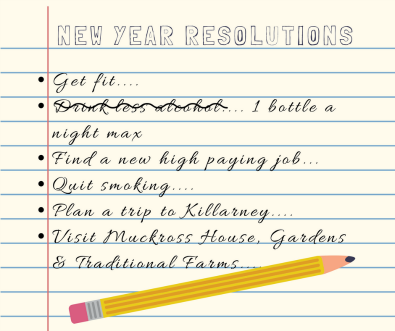 NEW YEAR RESOLUTIONS
• Get fit....
• Drink less alcohol.... 1 bottle a
night max
• Find a new high paying job...
• Quit smoking....
• Plan a trip to Killarney....
• Visit Muckross House, Gardens
& Traditional Farms....